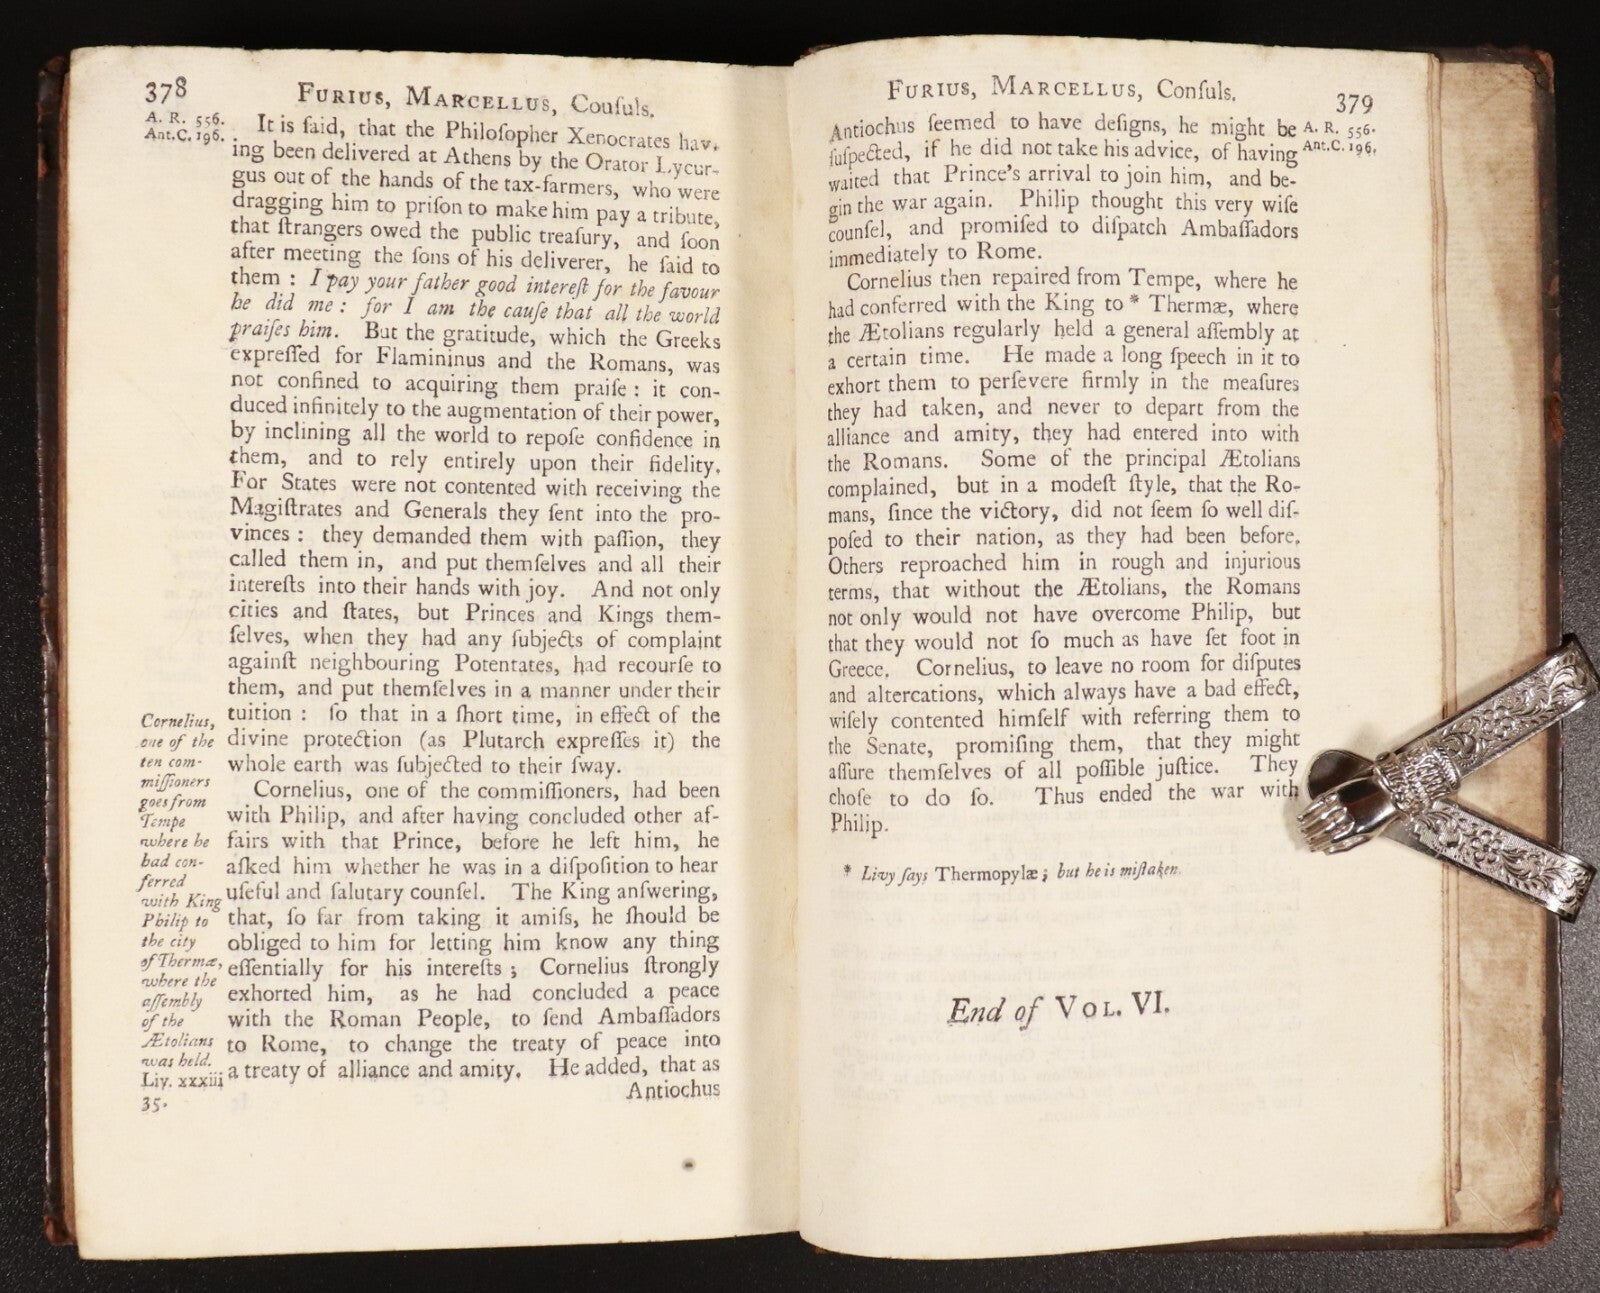 378
FURIUS, MARCELLUS, Conſuls.
A. R. 556.
Ant.C. 196.
It is ſaid, that the Philoſopher Xenocrates hav-
ing been delivered at Athens by the Orator Lycur-
gus out of the hands of the tax-farmers, who were
dragging him to priſon to make him pay a tribute,
that ſtrangers owed the public treaſury, and ſoon
after meeting the ſons of his deliverer, he ſaid to
them : I pay your father good intereſt for the favour
he did me : for I am the cauſe that all the world
praiſes him. But the gratitude, which the Greeks
expreſſed for Flamininus and the Romans, was
not confined to acquiring them praiſe : it con-
duced infinitely to the augmentation of their power,
by inclining all the world to repoſe confidence in
them, and to rely entirely upon their fidelity.
For States were not contented with receiving the
Magiſtrates and Generals they ſent into the pro-
vinces : they demanded them with paſſion, they
called them in, and put themſelves and all their
intereſts into their hands with joy. And not only
cities and ſtates, but Princes and Kings them-
ſelves, when they had any ſubjects of complaint
againſt neighbouring Potentates, had recourſe to
them, and put themſelves in a manner under their
tuition : ſo that in a ſhort time, in effect of the
divine protection (as Plutarch expreſſes it) the
whole earth was ſubjected to their ſway.
Cornelius,
one of the
ten com-
miſſioners
goes from
Tempe
where he
had con-
ferred
with King
Philip to
the city
of Thermæ,
where the
aſſembly
of the
Ætolians
was held.
Liv. xxxiii
35.
Cornelius, one of the commiſſioners, had been
with Philip, and after having concluded other af-
fairs with that Prince, before he left him, he
aſked him whether he was in a diſpoſition to hear
uſeful and ſalutary counſel. The King anſwering,
that, ſo far from taking it amiſs, he ſhould be
obliged to him for letting him know any thing
eſſentially for his intereſts ; Cornelius ſtrongly
exhorted him, as he had concluded a peace
with the Roman People, to ſend Ambaſſadors
to Rome, to change the treaty of peace into
a treaty of alliance and amity. He added, that as
Antiochus
FURIUS, MARCELLUS, Conſuls.
379
A. R. 556.
Ant.C. 196.
Antiochus ſeemed to have deſigns, he might be
ſuſpected, if he did not take his advice, of having
waited that Prince's arrival to join him, and be-
gin the war again. Philip thought this very wiſe
counſel, and promiſed to diſpatch Ambaſſadors
immediately to Rome.
Cornelius then repaired from Tempe, where he
had conferred with the King to * Thermæ, where
the Ætolians regularly held a general aſſembly at
a certain time. He made a long ſpeech in it to
exhort them to perſevere firmly in the meaſures
they had taken, and never to depart from the
alliance and amity, they had entered into with
the Romans. Some of the principal Ætolians
complained, but in a modeſt ſtyle, that the Ro-
mans, ſince the victory, did not ſeem ſo well diſ-
poſed to their nation, as they had been before.
Others reproached him in rough and injurious
terms, that without the Ætolians, the Romans
not only would not have overcome Philip, but
that they would not ſo much as have ſet foot in
Greece. Cornelius, to leave no room for diſputes
and altercations, which always have a bad effect,
wiſely contented himſelf with referring them to
the Senate, promiſing them, that they might
aſſure themſelves of all poſſible juſtice. They
choſe to do ſo. Thus ended the war with
Philip.
* Livy ſays Thermopylæ ; but he is miſtaken.
End of VOL. VI.